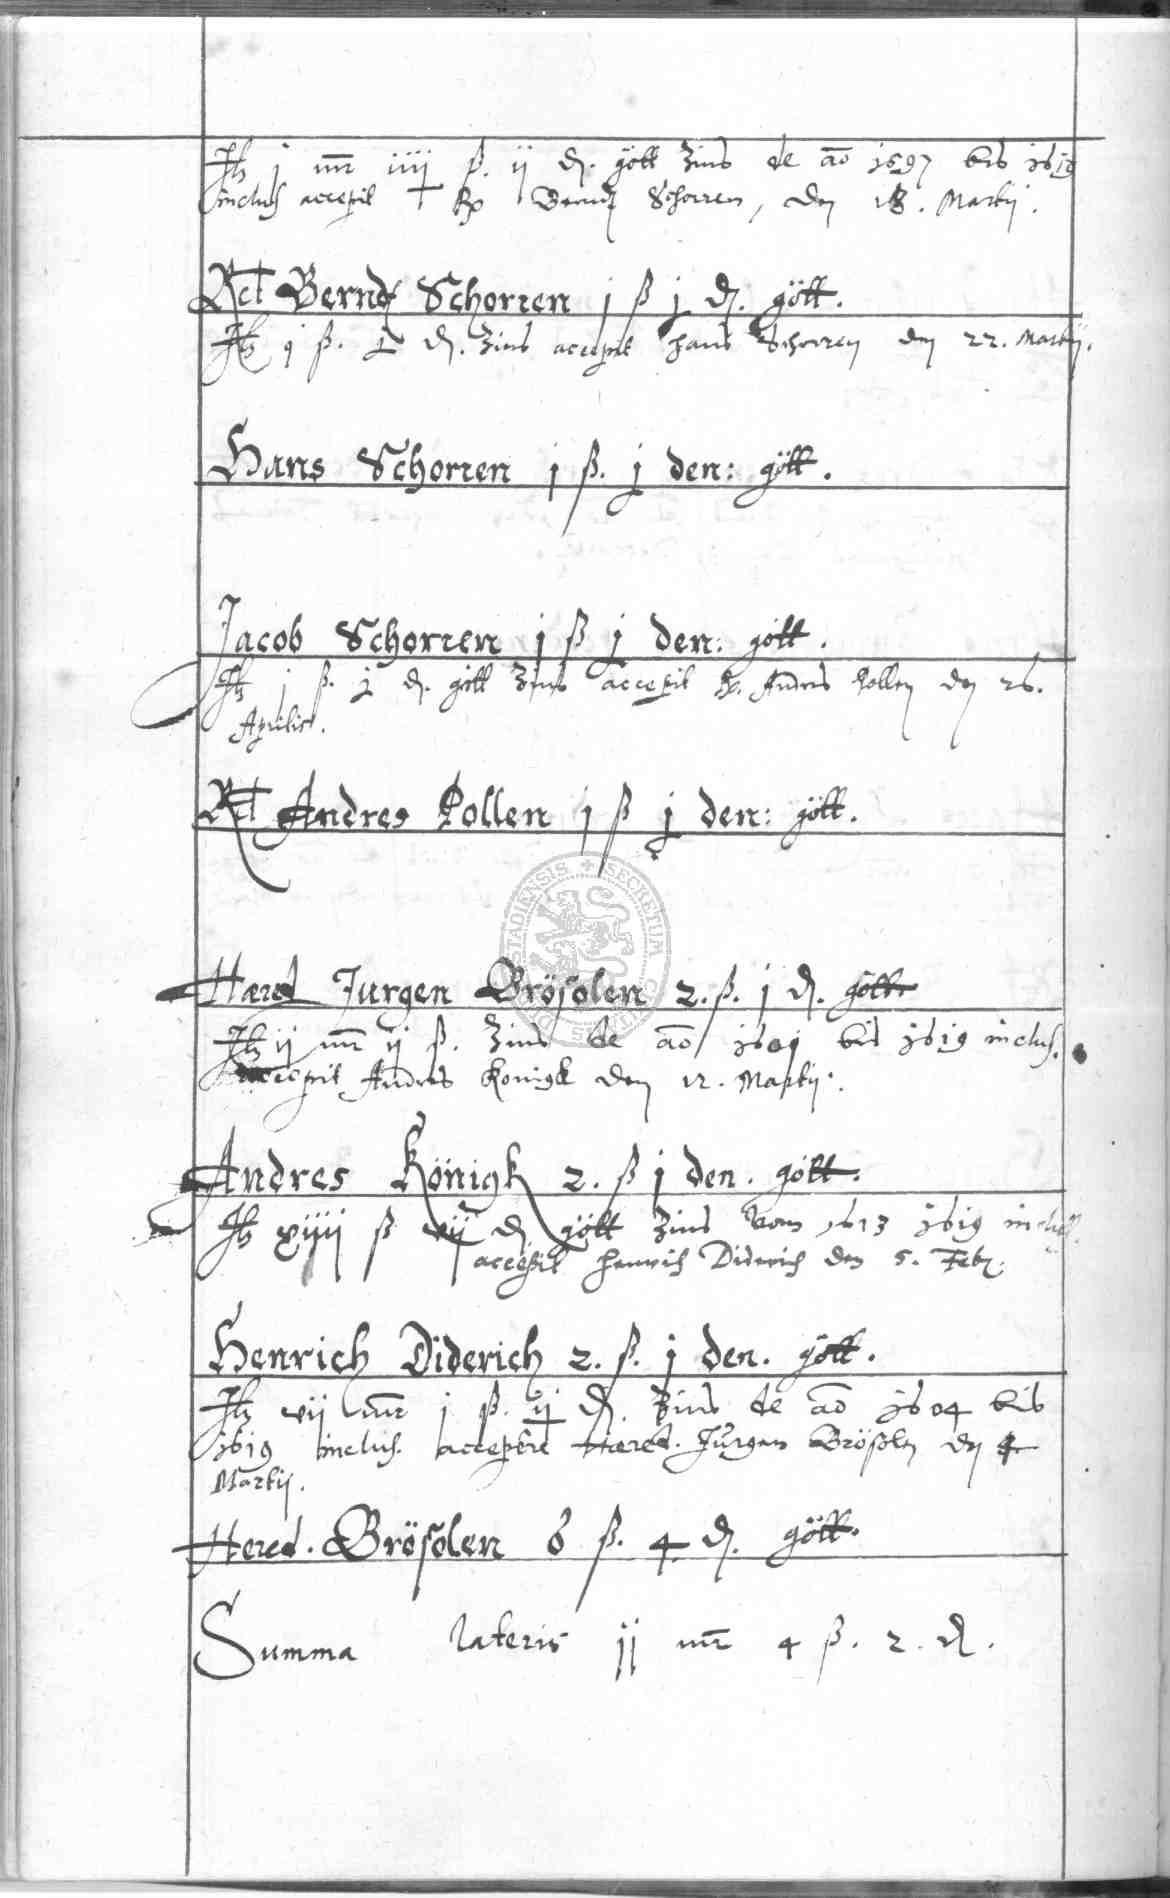 It j mr iiij ß. ij d. gött Zins de ao 1597 bis 1619
inclus accepit Rp Berndt Schorren, den 18. Martij.
Rel Berndt Schorren j ß j d. gött.
It j ß. j d. Zins accepit Hans Schorren den 22. Martij.
Hans Schorren j ß. j den: gött.
Jacob Schorren j ß j den: gött.
It j ß. j d. gött Zins accepit Andres Pollen den 26.
Aprilis.
Rel Andres Pollen j ß j den: gött.
Hæred Jurgen Brösolen 2. ß. j d. gött
It ij mr ij ß. Zins de ao 1601 bis 1619 inclus.
accepit Andres Konigk den 12. Martij.
Andres Königk 2. ß j den. gött.
It xiiij ß vij d gött Zins vom 1613 1619 inclus.
accepit Henrich Diderich den 5. Feb.
Henrich Diderich 2. ß. j den. gött.
It vij mr j ß. ij d. Zins de ao 1604 bis
1619 inclus. accepere Hæred. Jürgen Brösolen den 4
Martij.
Hered. Brösolen 6 ß. 4 d. gött.
Summa lateris ij mr 4 ß. 2. d.
SECRETUM CIVITATIS STADIENSIS